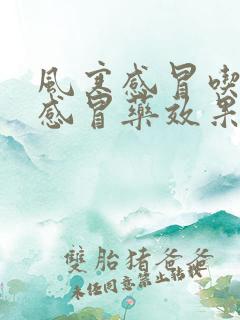 風寒感冒喫
感冒藥效果
雙胎豬爸爸
未经同意禁止转载